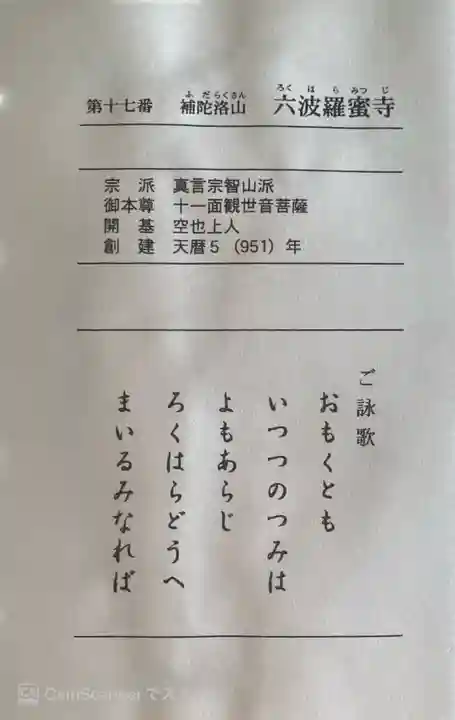 第十七番 補陀洛山 六波羅蜜寺
ふだらくさん ろくはらみつじ
宗派 真言宗智山派
御本尊 十一面観世音菩薩
開基 空也上人
創建 天暦5(951)年
ご詠歌
おもくとも
いつつのつみは
よもあらじ
ろくはらどうへ
まいるみなれば
CamScannerでス